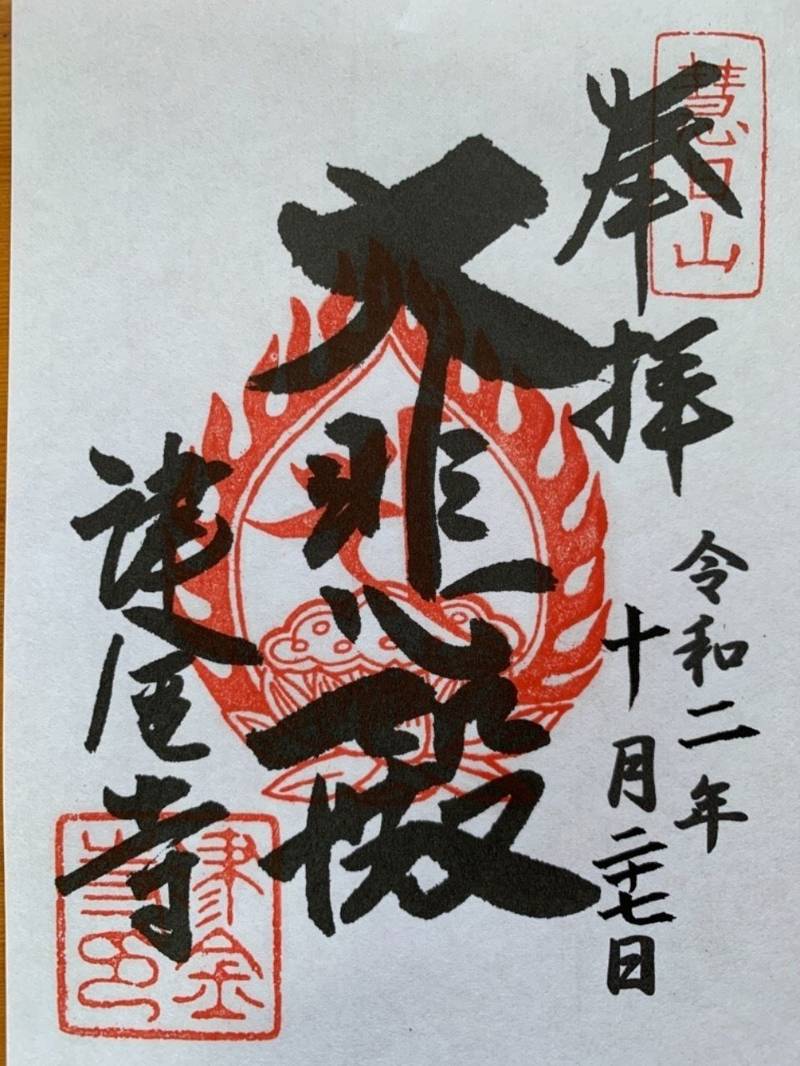 慧日山
奉拝
令和二年
十月二十七日
大悲殿
寺